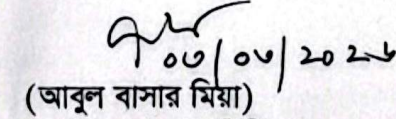 ০৩/০৩/২০২৬
(আবুল বাসার মিয়া)